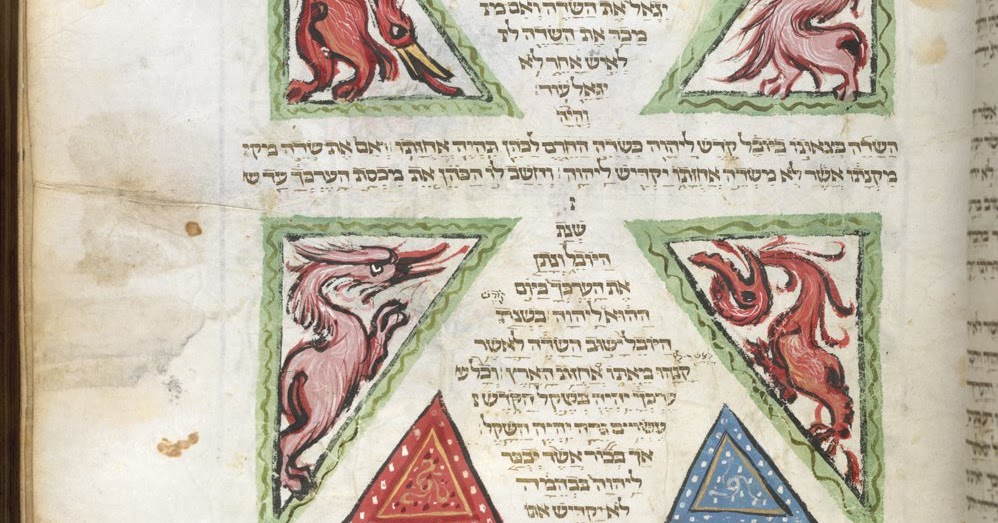 יגאל את השדה ואם
מכר את השדה
לאיש אחר לא
יגאל עוד
והיה
השדה בצאתו ביובל קדש ליהוה כשדה החרם לכהן תהיה אחזתו ואם את שדה
מקנתו אשר לא משדה אחזתו יקדיש ליהוה וחשב לו הכהן את מכסת הערכך עד
שנת
היובל ונתן
את הערכך ביום
ההוא ליהוה בשנת קדש
היובל ישוב השדה לאשר
קנהו מאתו אחזת הארץ וכל
ערכך יהיה בשקל הקדש
עשרים גרה יהיה השקל
אך בכור אשר יבכר
ליהוה בבהמה
לא יקדיש אתו